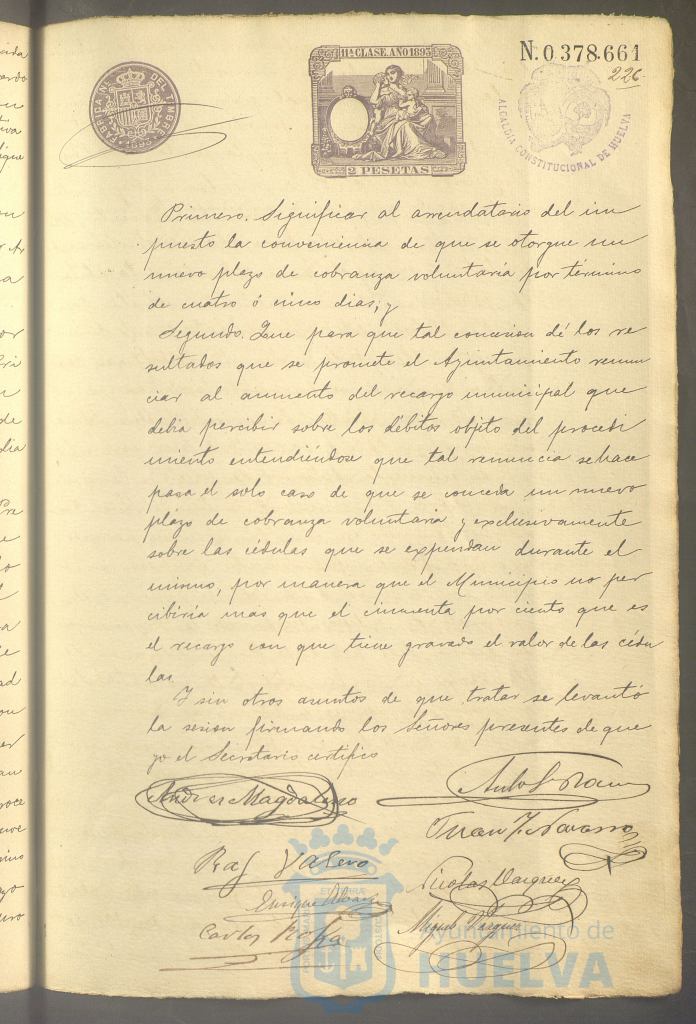 11ª CLASE. AÑO 1893
N. 0.378.661
226
FABRICA NL. DEL TIMBRE
1893
2 PESETAS
ALCALDÍA CONSTITUCIONAL DE HUELVA
Primero. Significar al arrendatario del im
puesto la conveniencia de que se otorgue un
nuevo plazo de cobranza voluntaria por término
de cuatro ó cinco dias; y
Segundo. Que para que tal concesion dé los re
sultados que se promete el Ayuntamiento renun
ciar al aumento del recargo municipal que
debia percibir sobre los débitos objeto del procedi
miento entendiéndose que tal renuncia se hace
para el solo caso de que se conceda un nuevo
plazo de cobranza voluntaria y exclusivamente
sobre las cédulas que se expendan durante el
mismo, por manera que el Municipio no per
cibiria mas que el cincuenta por ciento que es
el recargo con que tiene gravado el valor de las cédu
las.
Y sin otros asuntos de que tratar se levantó
la sesion firmando los Señores presentes de que
yo el Secretario certifico
Andres Magdaleno
Juan J. Navarro
Raf Valero
Nicolas Vazquez
Enrique
Carlos
Miguel Vazquez
Ayuntamiento de
HUELVA